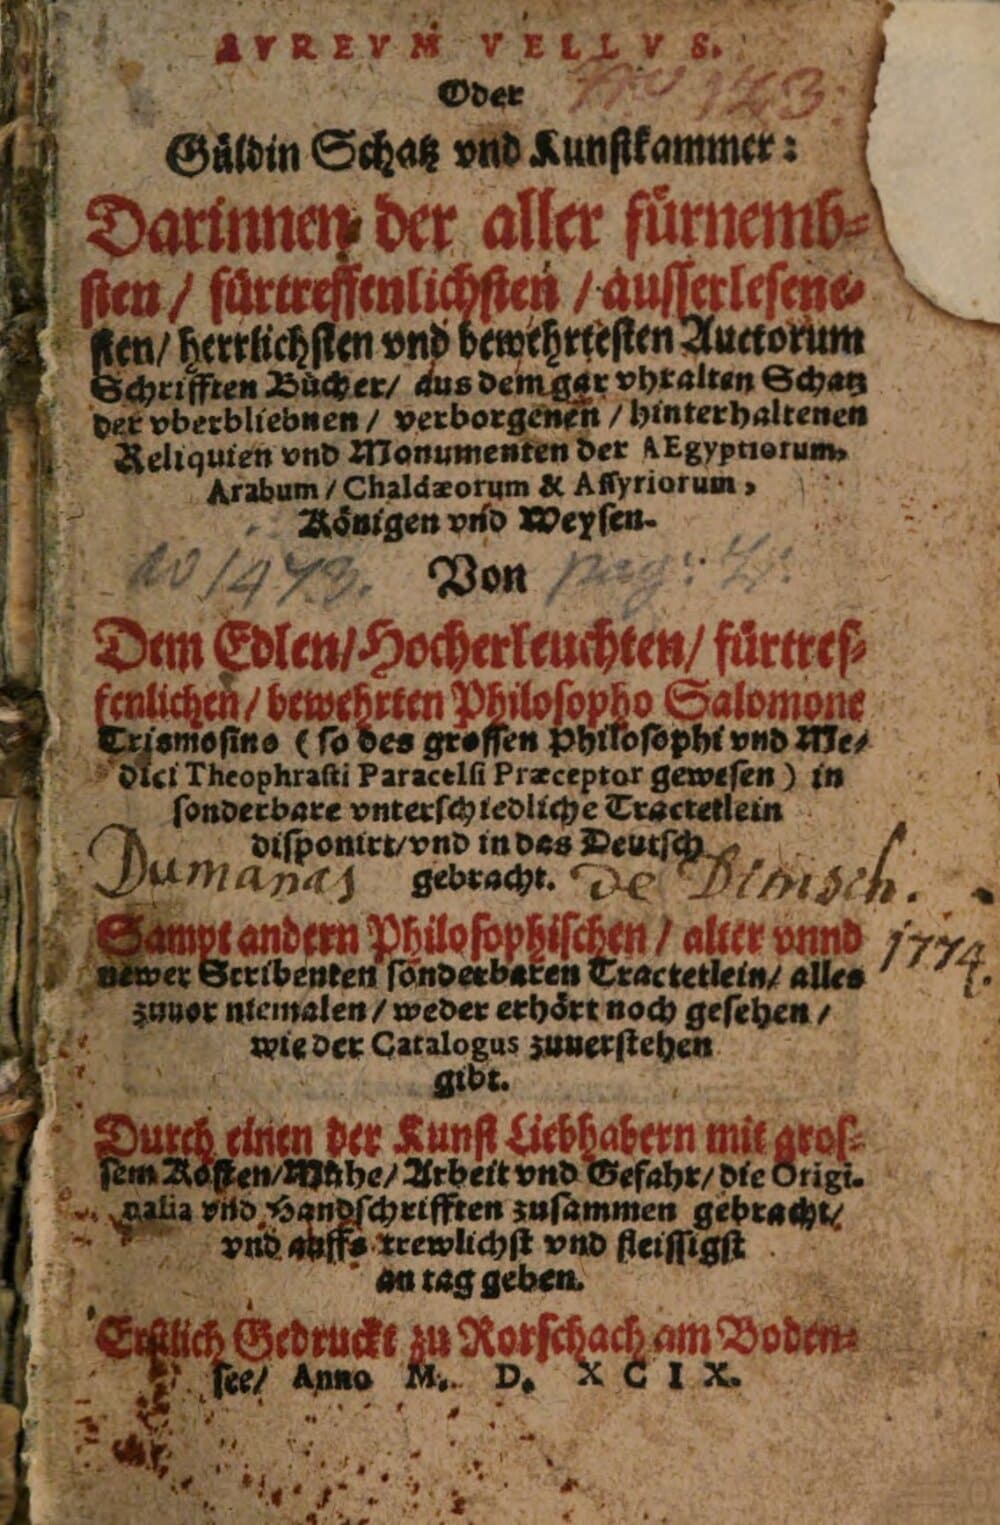 AVREVM VELLVS.
Oder
No 123.
Güldin Schatz vnd Kunstkammer:
Darinnen der aller fürnemb⸗
sten / fürtreffenlichsten / ausserlesene⸗
sten/ herrlichsten vnd bewehrtesten Auctorum
Schrifften Bücher/ aus dem gar vhralten Schatz
der vberbliebnen / verborgenen / hinterhaltenen
Reliquien vnd Monumenten der AEgyptiorum,
Arabum / Chaldæorum & Assyriorum,
Königen vnd Weysen.
No 1473. Von pag: 4:
Dem Edlen/ Hocherleuchten/ fürtref⸗
fenlichen/ bewehrten Philosopho Salomone
Trismosino (so des grossen Philosophi vnd Me⸗
dici Theophrasti Paracelsi Præceptor gewesen) in
sonderbare vnterschiedliche Tractetlein
disponirt/ vnd in das Deutsch
Dumanas gebracht. de Bimsch.
Sampt andern Philosophischen / alter vnnd 1774.
newer Scribenten sonderbaren Tractetlein/ alles
zuuor niemalen / weder erhört noch gesehen /
wie der Catalogus zuuerstehen
gibt.
Durch einen der Kunst Liebhabern mit gros⸗
sem Kosten/ Mühe/ Arbeit vnd Gefahr/ die Origi⸗
nalia vnd Handschrifften zusammen gebracht/
vnd auffs trewlichst vnd fleissigst
an tag geben.
Erstlich Gedruckt zu Rorschach am Boden⸗
see/ Anno M. D. XCIX.